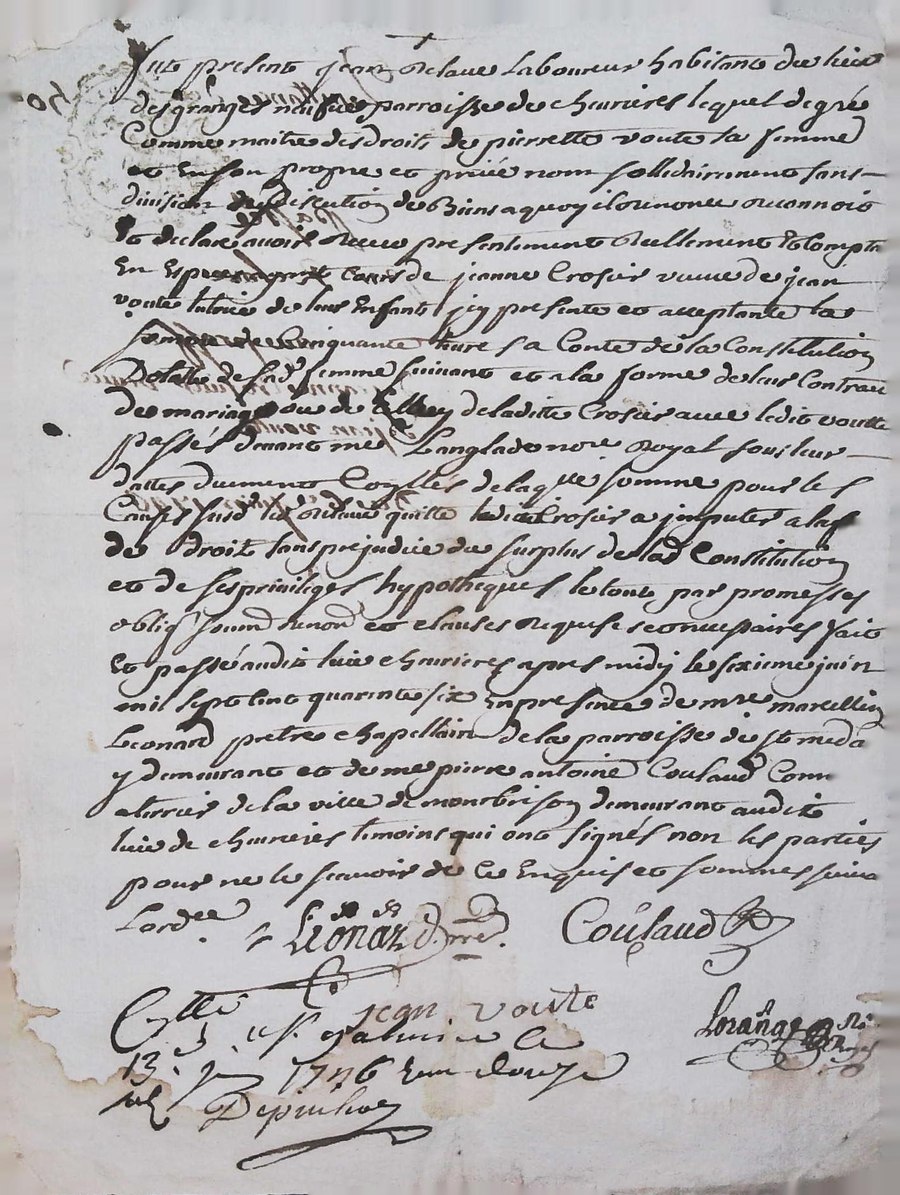 Fut present jean Relave Laboureur habitant du lieu
des granges parroisse de chevrieres lequel de gré
Comme maitre des droits de pierrette voute sa femme
et En son propre et privé nom sollidairement sans
division de discution de Biens a quoy il renonce reconnois
Et declare avoir Receu presentement Reellement
En Especes cours de jeanne Crosier veuve de jean
voute tutrice de leurs Enfants jcy presente et acceptante la
somme de Cinquante livres a Conte de la Constitution
Dotalle de sad. femme suivant et a la forme de leur Contrau
de mariage ou de Celluy de laditte Crosier avec ledit voutte
passés devant me Langlade nore Royal sous leur
dattes duement Coyllés de laqlle somme pour les
Causes susd. led. Relave quitte laditte Crosier a jmputer a
de droit sans prejudice du surplus de lad. Constitution
et de ses privileges hypotheques le tout par promesses
obligons soumd renond et clauses Requise et necessaires fait
Et passé audit lieu chevrieres apres midy le sixieme juin
mil sept cent quarante six En presence de mre marcellin
Leonard pretre chapellain de la parroisse de st meda
y demeurant et de me pierre antoine Coulaud Comm
a terrier de la ville de montbrison demeurant audit
lieu de chevrieres temoins qui ont signés non les parties
pour ne le scavoir de Ce Enquis et sommes suiva
Lordce
Leonard pre. Coulaud
jean voute
Cyllé a st galmier le Lorange No Royal
13e. juin 1746 Recu douze
sols Depinhac